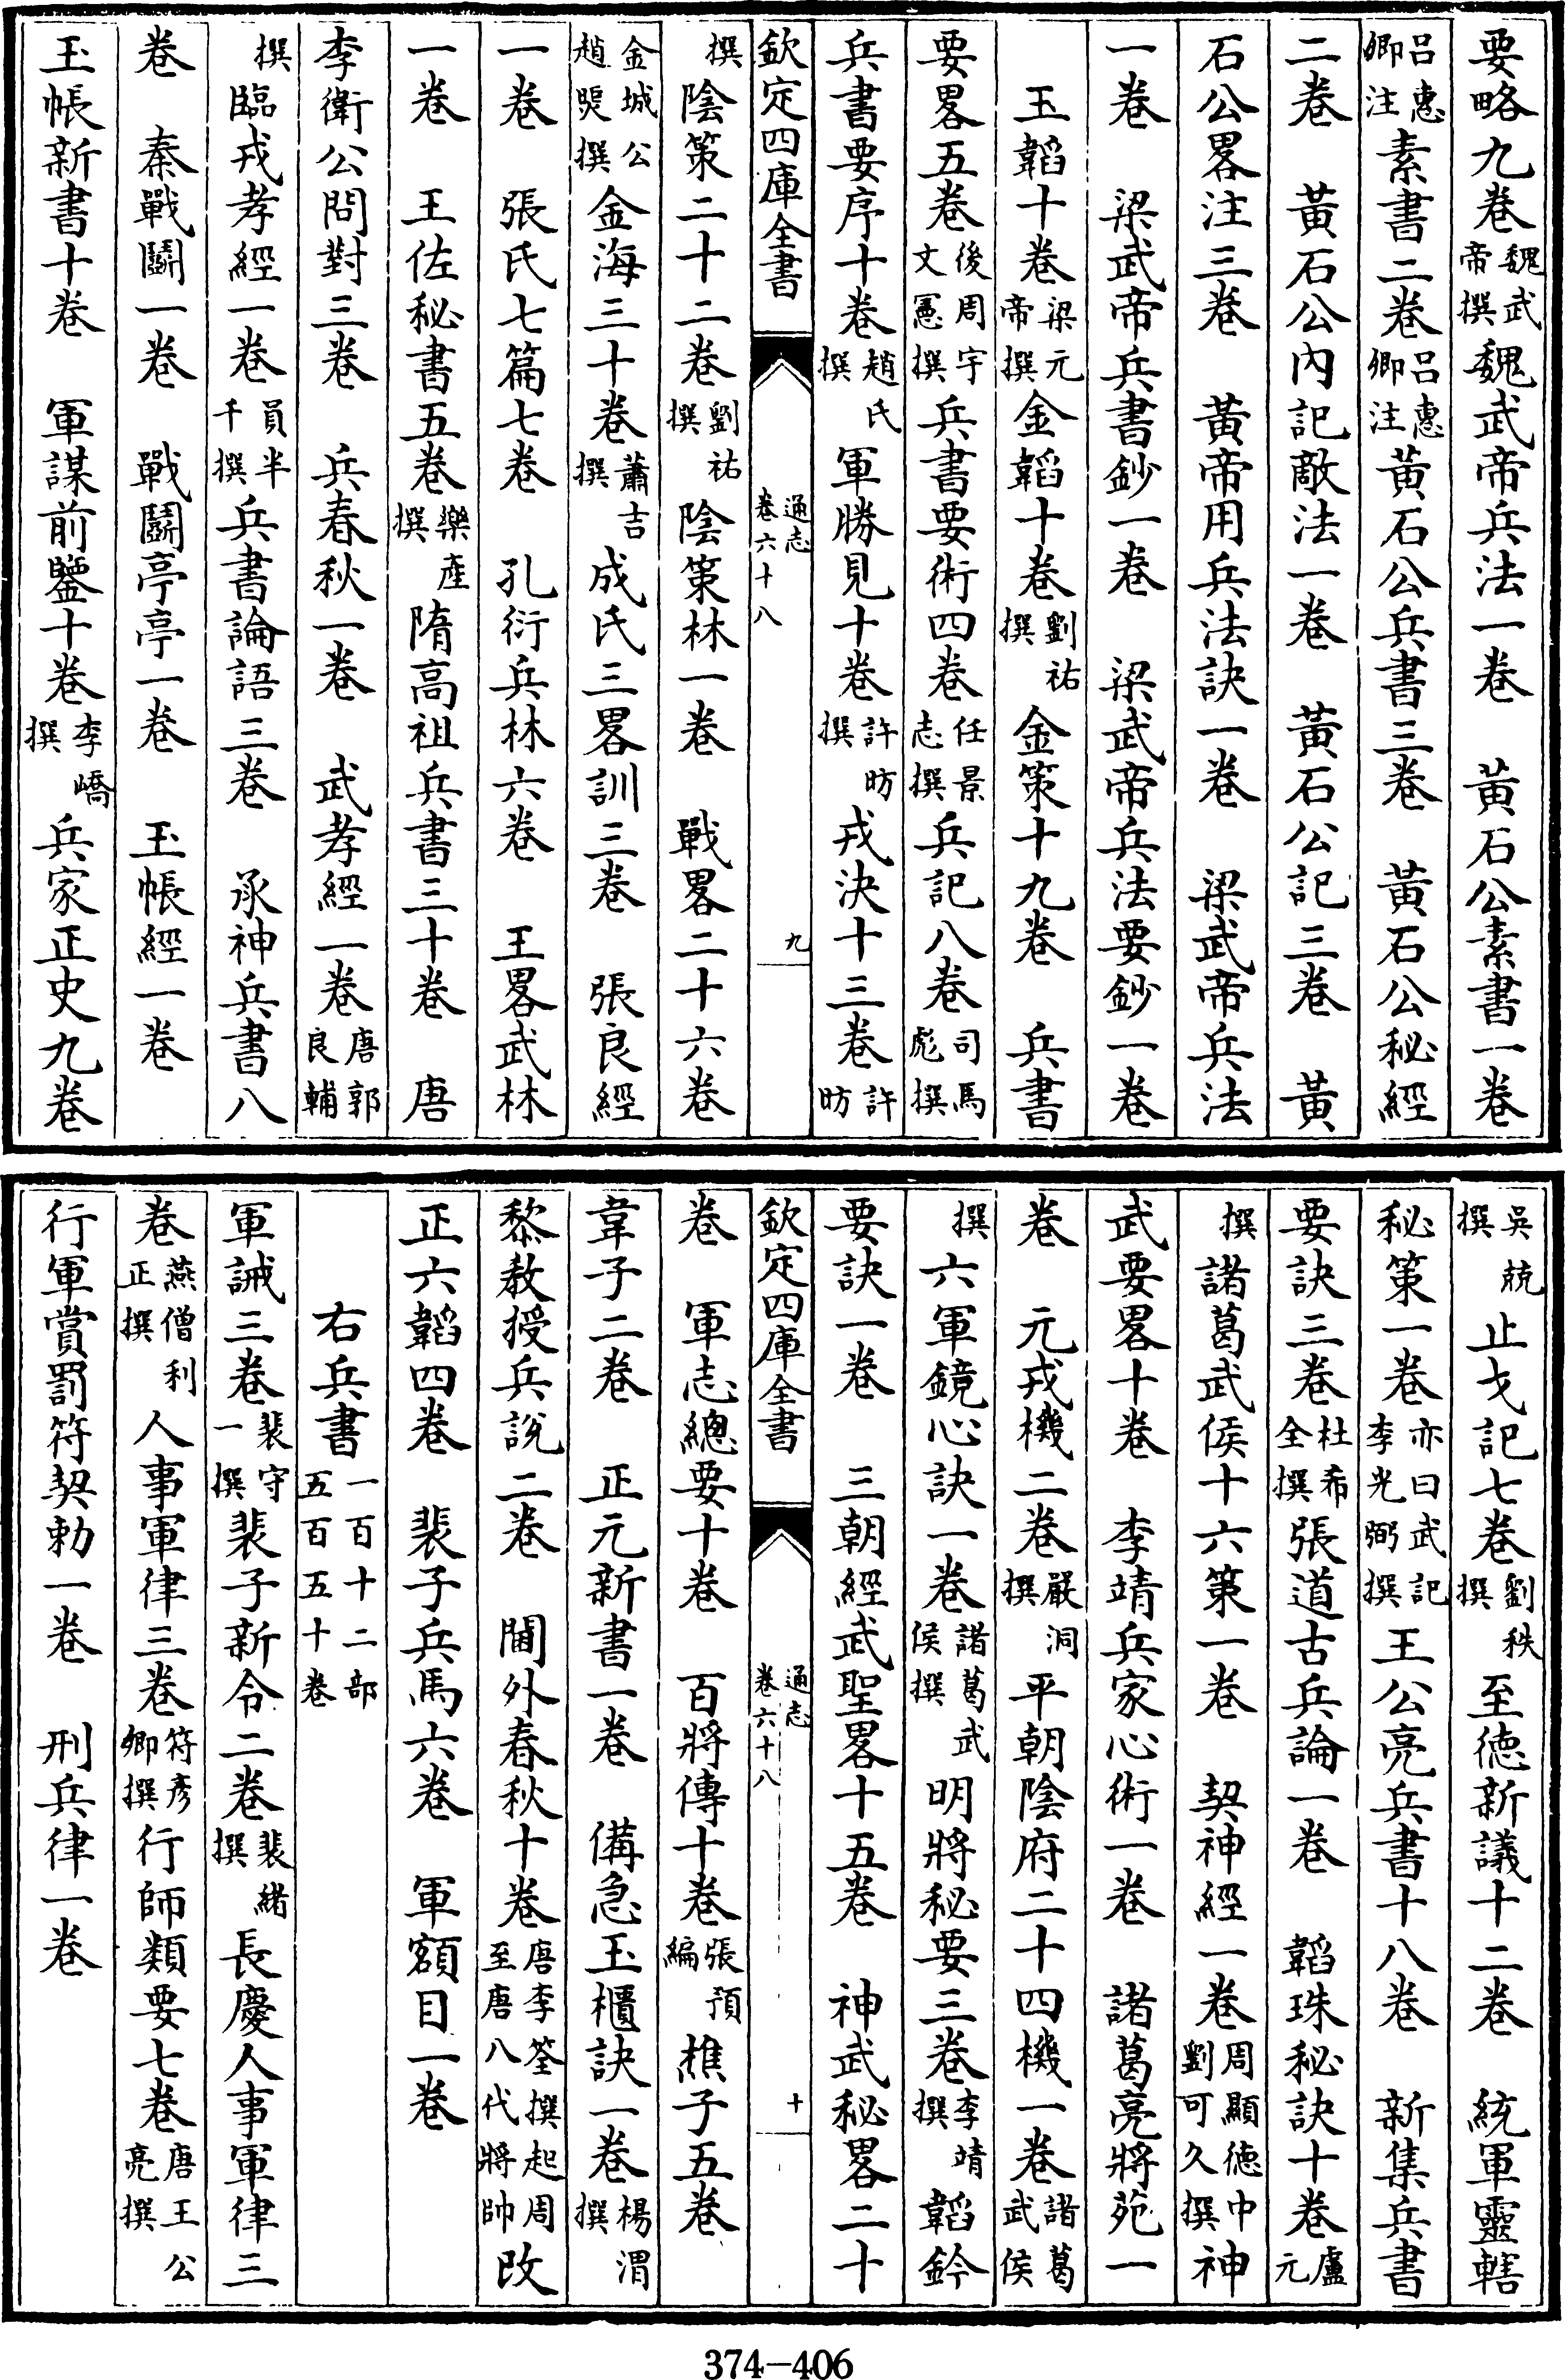 要略九卷魏武帝撰魏武帝兵法一卷　黃石公素書一卷
呂惠卿注素書二卷呂惠卿注黃石公兵書三卷　黃石公秘經
二卷　黃石公內記敵法一卷　黃石公記三卷　黃
石公畧注三卷　黃帝用兵法訣一卷　梁武帝兵法
一卷　梁武帝兵書鈔一卷　梁武帝兵法要鈔一卷
玉韜十卷梁元帝撰金韜十卷劉祐撰金策十九卷　兵書
要畧五卷後周宇文憲撰兵書要術四卷任景志撰兵記八卷司馬彪撰
兵書要序十卷趙氏撰軍勝見十卷許昉撰戎決十三卷許昉
欽定四庫全書　通志卷六十八　九
撰陰策二十二卷劉祐撰陰策林一卷　戰畧二十六卷
金城公趙煚撰金海三十卷蕭吉撰成氏三畧訓三卷　張良經
一卷　張氏七篇七卷　孔衍兵林六卷　王畧武林
一卷　王佐秘書五卷樂產撰隋高祖兵書三十卷　唐
李衛公問對三卷　兵春秋一卷　武孝經一卷唐郭良輔
撰臨戎孝經一卷員半千撰兵書論語三卷　承神兵書八
卷　秦戰鬭一卷　戰鬭亭亭一卷　玉帳經一卷
玉帳新書十卷　軍謀前鑒十卷李嶠撰兵家正史九卷
吳兢撰止戈記七卷劉秩撰至德新議十二卷　統軍靈轄
秘策一卷亦曰武記李光弼撰王公亮兵書十八卷　新集兵書
要訣三卷杜希全撰張道古兵論一卷　韜珠秘訣十卷盧元
撰諸葛武侯十六策一卷　契神經一卷周顯德中劉可久撰神
武要畧十卷　李靖兵家心術一卷　諸葛亮將苑一
卷　元戎機二卷嚴洞撰平朝陰府二十四機一卷諸葛武侯
撰六軍鏡心訣一卷諸葛武侯撰明將秘要三卷李靖撰韜鈐
要訣一卷　三朝經武聖畧十五卷　神武秘畧二十
欽定四庫全書　通志卷六十八　十
卷　軍志總要十卷　百將傳十卷張預編樵子五卷
韋子二卷　正元新書一卷　備急玉櫃訣一卷楊渭撰
黎教授兵說二卷　閫外春秋十卷唐李筌撰起周至唐八代將帥改
正六韜四卷　裴子兵馬六卷　軍額目一卷
右兵書一百十二部五百五十五卷
軍誡三卷裴守一撰裴子新令二卷裴緒撰長慶人事軍律三
卷燕僧利正撰人事軍律三卷符彥卿撰行師類要七卷唐王公亮撰
行軍賞罰符契勅一卷　刑兵律一卷
374-406